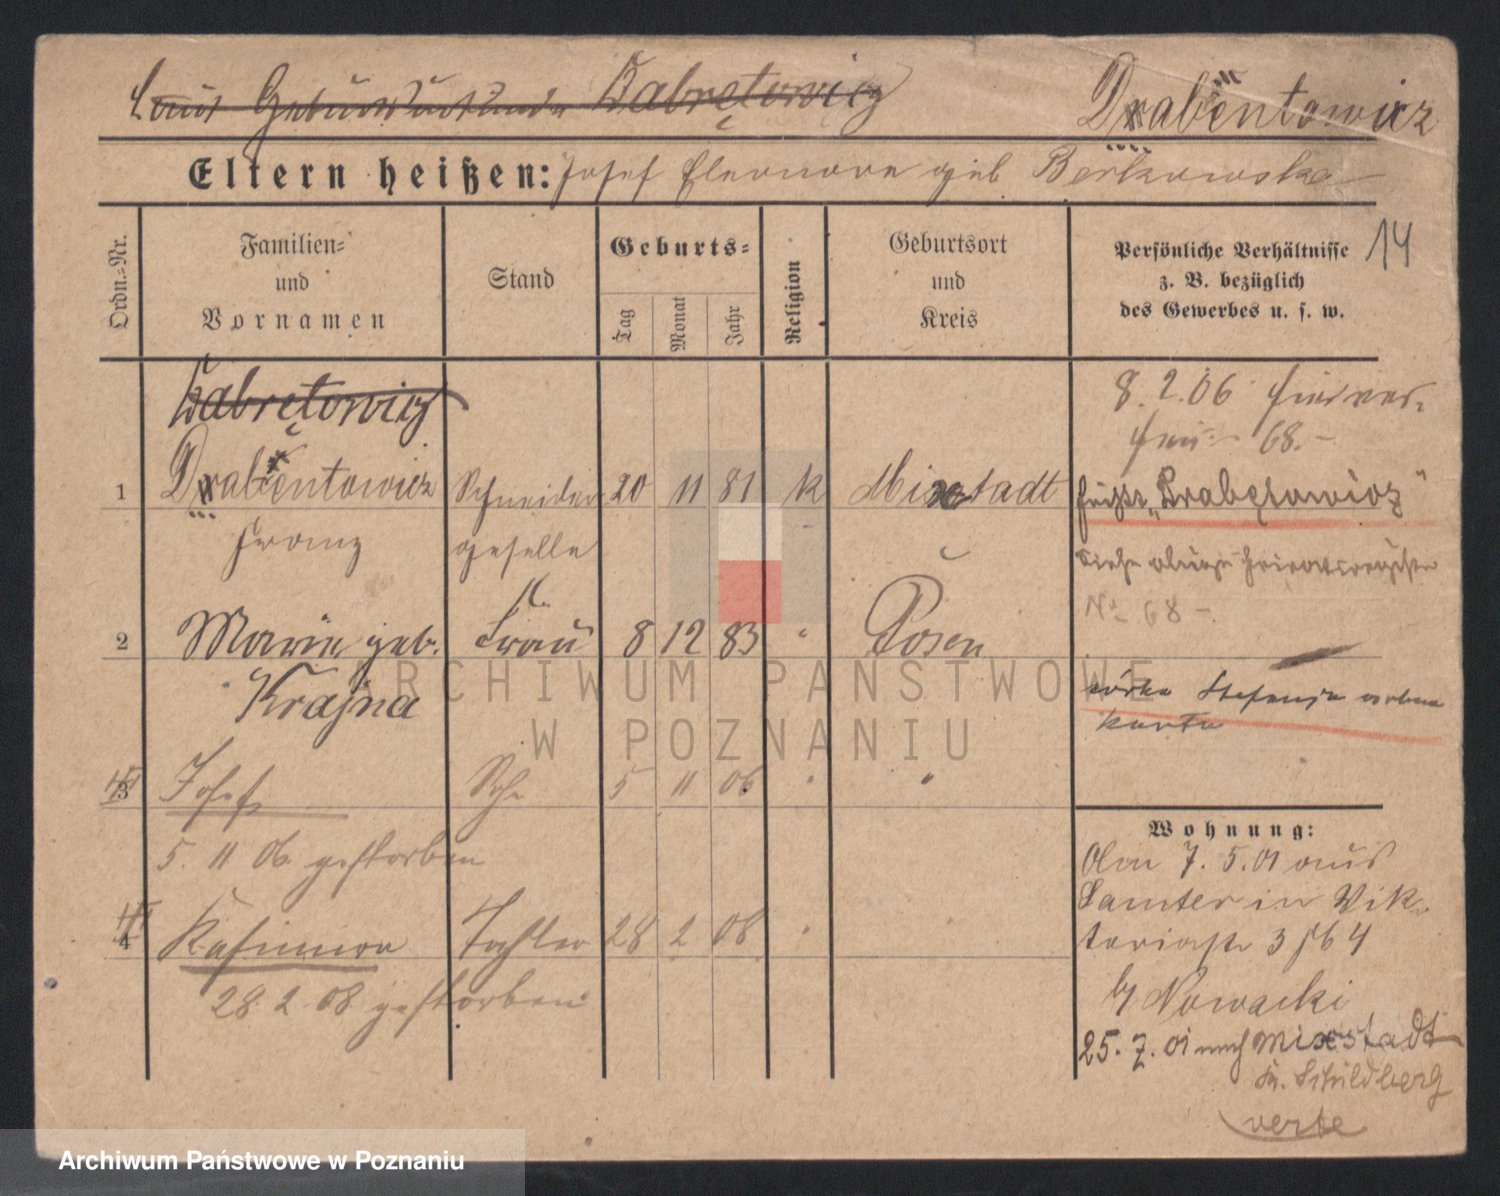 Laut Geburtsurkunde Dabrętowicz
Drabentowicz
Eltern heißen: Josef Eleonore geb Berkowska
14
Ordn.=Nr.
Familien=
und
Vornamen
Stand
Geburts=
Tag
Monat
Jahr
Religion
Geburtsort
und
Kreis
Persönliche Verhältnisse
z. B. bezüglich
des Gewerbes u. s. w.
Dabrętowicz
8. 2. 06 hier ver-
68.-
1 Drabentowicz Schneider 20 11 81 k Mixstadt
heißt "Drabętowicz"
Franz geselle
siehe
No 68 -
2 Marie geb. Frau 8 12 83 " Posen
Krajna
córka Stefania
karta
3 Josef Sohn 5 11 06 " "
5. 11 06. gestorben
4 Kasimira Tochter 28 2 08 "
28. 2. 08. gestorben
Wohnung:
Am 7. 5. 01 aus
Samter in Vik-
toriastr 3
b/ Nowacki
25. 7. 01 nach Mixstadt
Kr. Schildberg
verte
ARCHIWUM PAŃSTWOWE
W POZNANIU
Archiwum Państwowe w Poznaniu